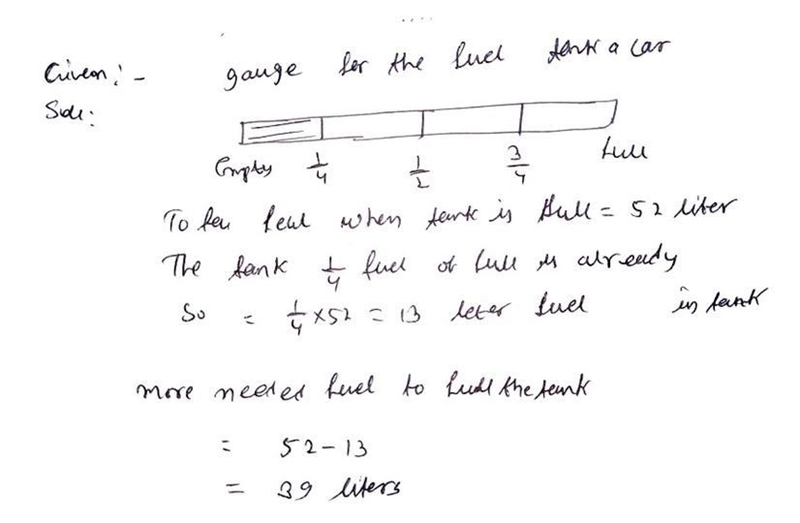 Given:- gauge for the fuel tank a car
Sole:
Empty 1/4 1/2 3/4 full
To feu feul when tank is full = 52 liter
The tank 1/4 fuel of full is already
So = 1/4 × 52 = 13 leter fuel in tank
more needed fuel to full the tank
= 52 - 13
= 39 liters